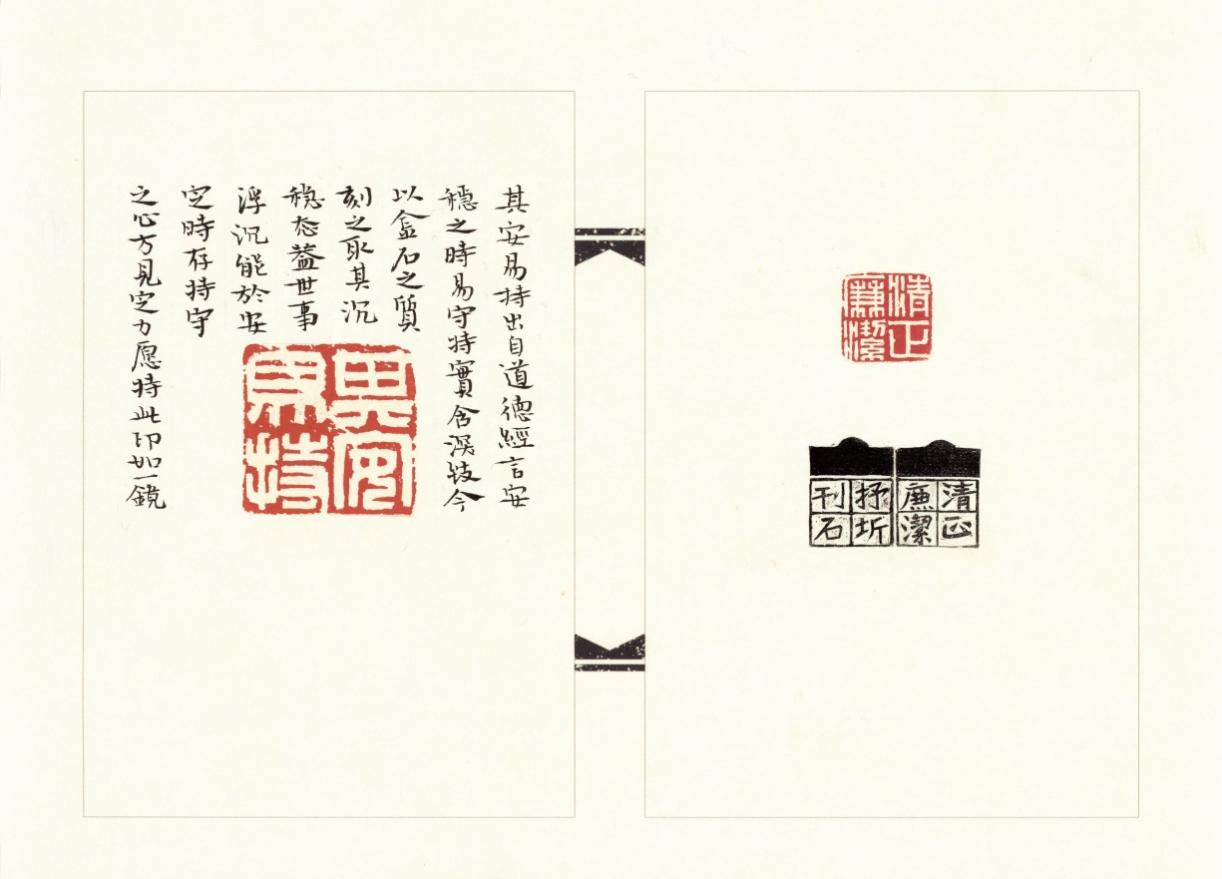 其安易持出自道德經言安
穩之時易守持實含深今
以金石之質
刻之取其沉
稳态蓋世事
浮沉能於安
定時存持守
之心方見定力愿持此印如一鏡
其安
易持
清正
廉潔
清正
廉潔
抒圻
刊石